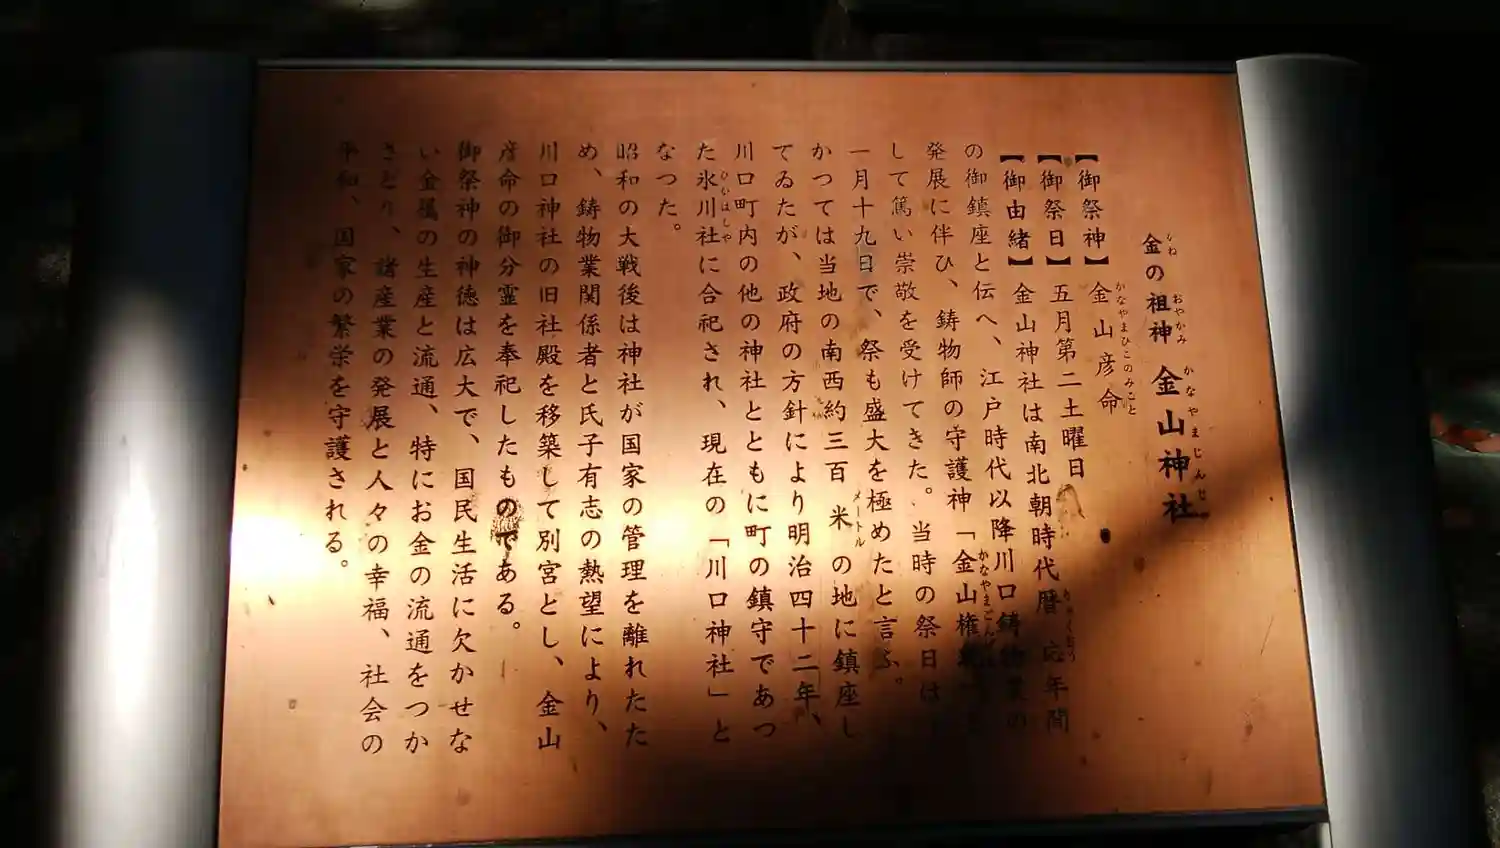 金の祖神 金山神社
【御祭神】金山彦命
【御祭日】五月第二土曜日
【御由緒】金山神社は南北朝時代暦応年間
の御鎮座と伝へ、江戸時代以降川口鋳物業の
発展に伴ひ、鋳物師の守護神「金山権
して篤い崇敬を受けてきた。当時の祭日は十
一月十九日で、祭も盛大を極めたと言ふ。
かつては当地の南西約三百米の地に鎮座し
てゐたが、政府の方針により明治四十二年、
川口町内の他の神社とともに町の鎮守であつ
た氷川社に合祀され、現在の「川口神社」と
なつた。
昭和の大戦後は神社が国家の管理を離れたた
め、鋳物業関係者と氏子有志の熱望により、
川口神社の旧社殿を移築して別宮とし、金山
彦命の御分霊を奉祀したものである。
御祭神の神徳は広大で、国民生活に欠かせな
い金属の生産と流通、特にお金の流通をつか
さどり、諸産業の発展と人々の幸福、社会の
平和、国家の繁栄を守護される。
かね
おやかみ
かなやまじんじゃ
かなやまひこのみこと
りゃくおう
かなやまごんげん
メートル
ひかはしや